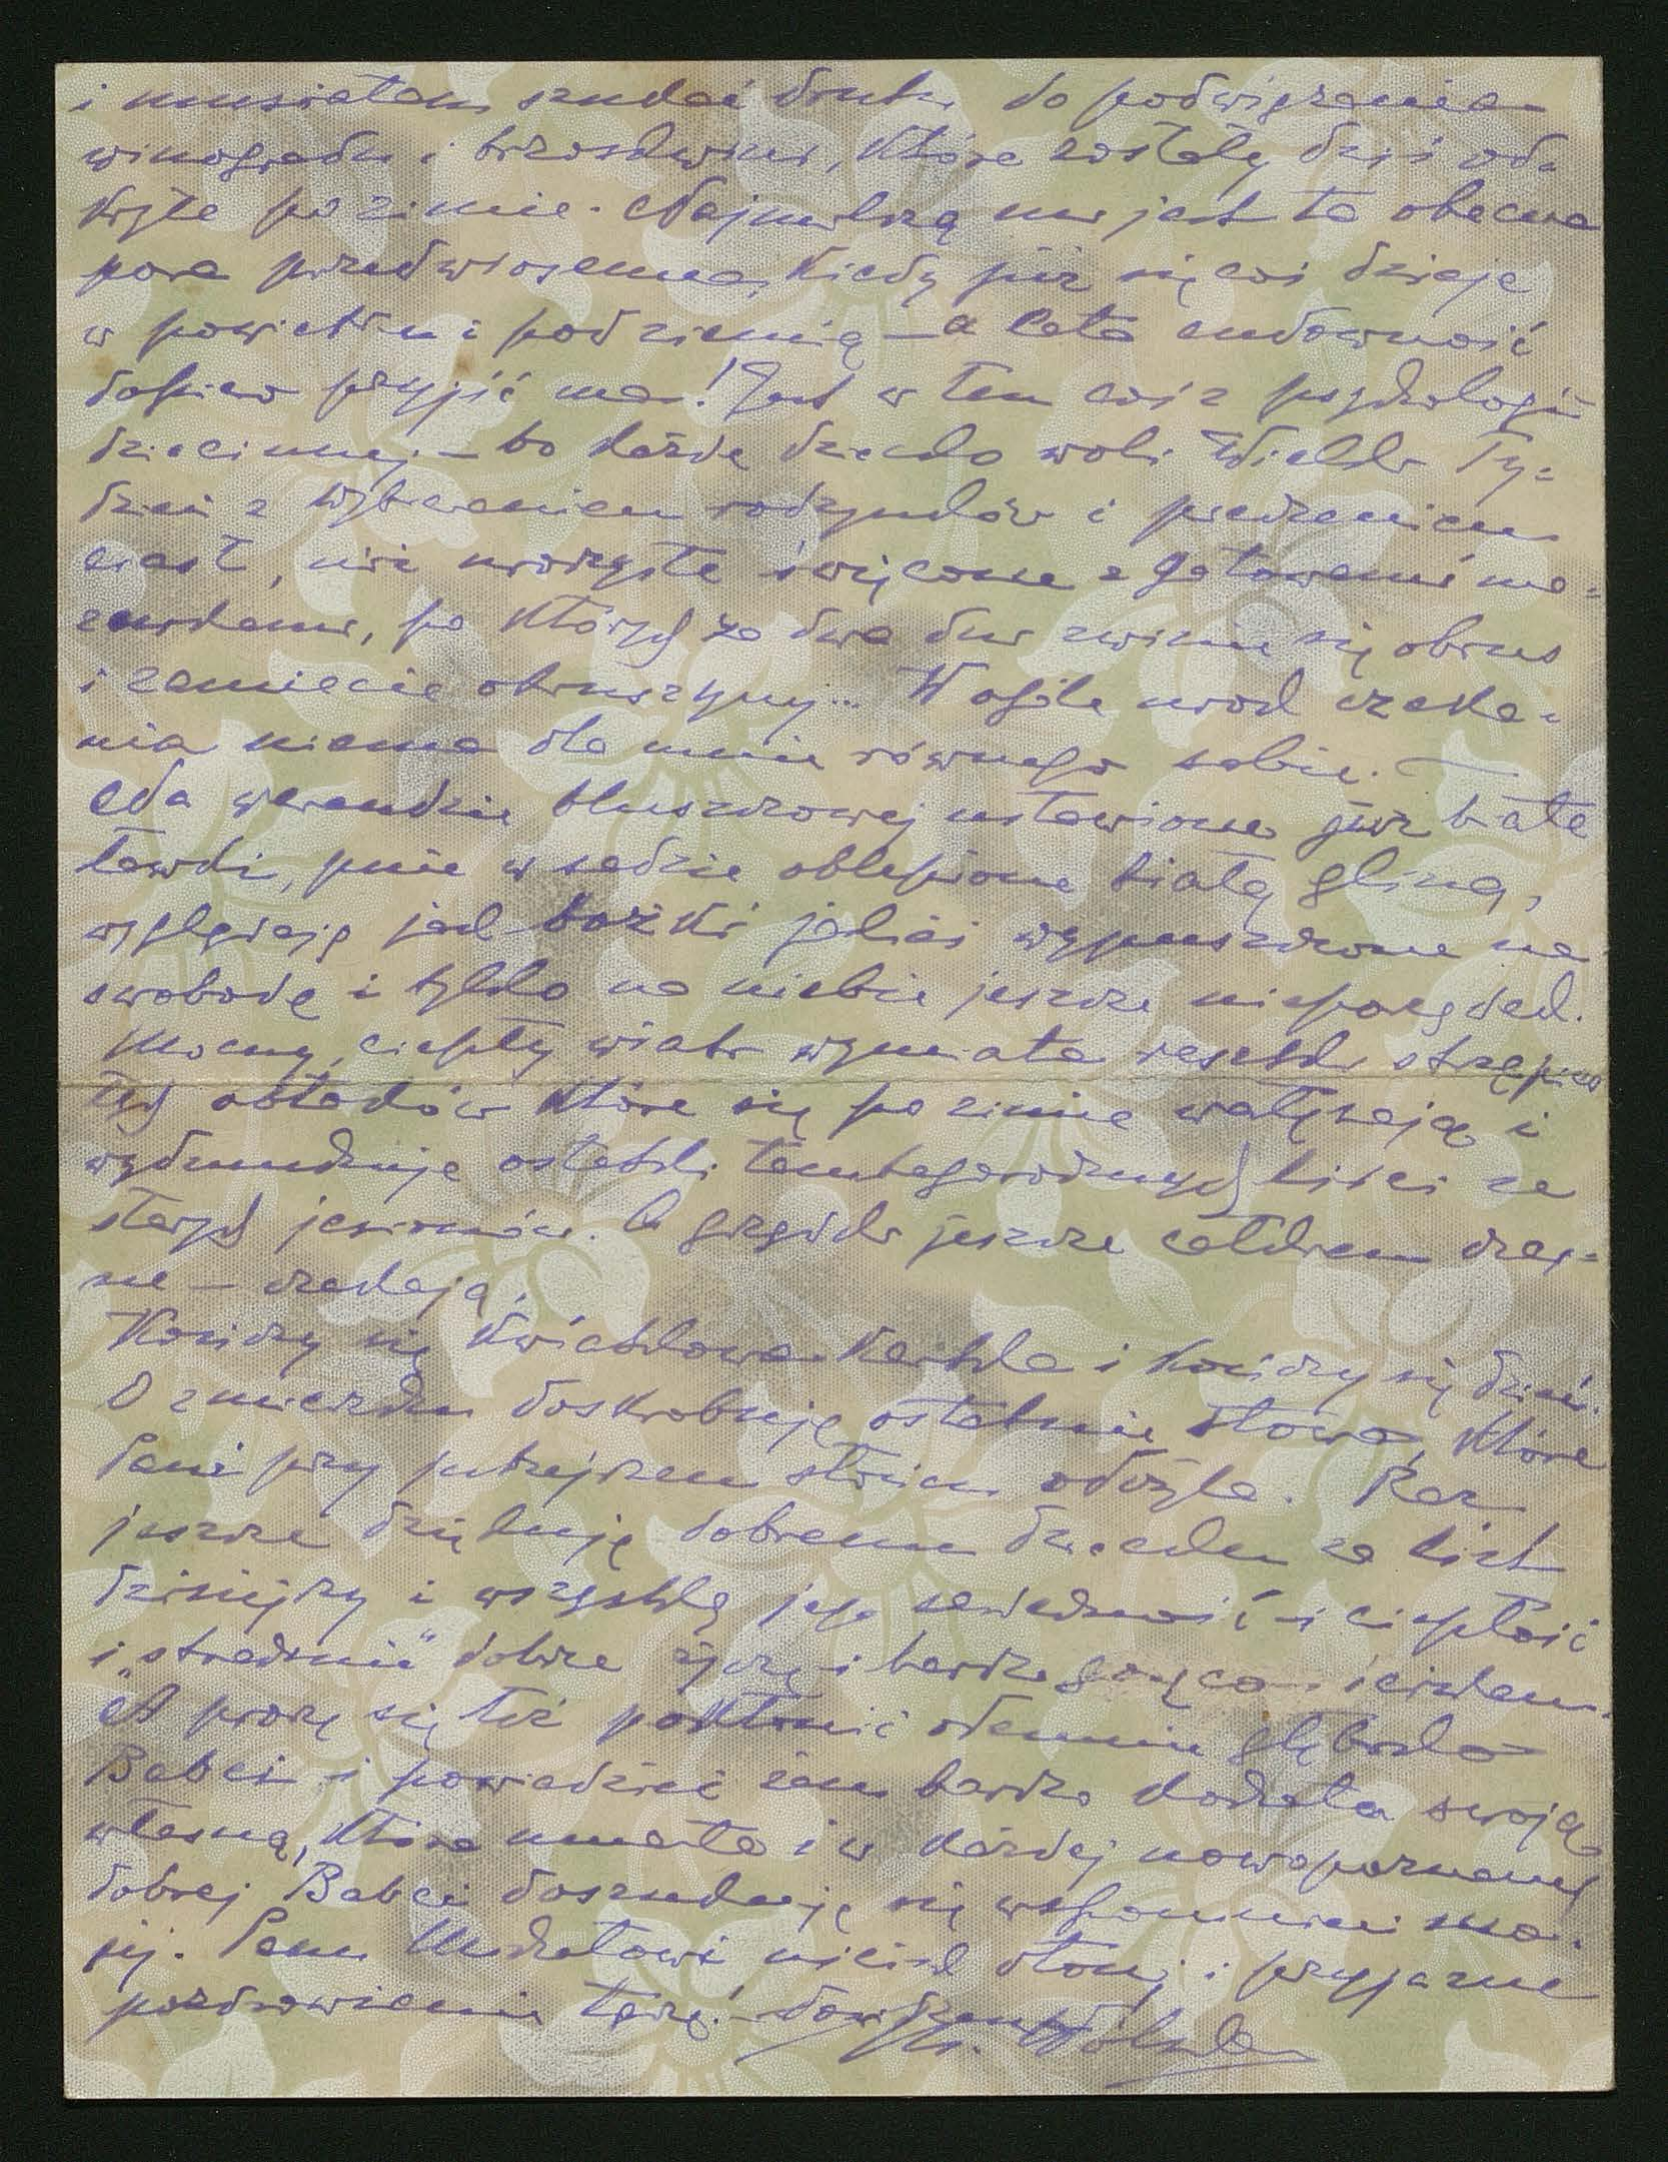 i musiałam szukać drutu do podwiązania
winogradu i brzoskwini, które zostały dziś od-
kryte po zimie. Najmilszą mi jest ta obecna
pora przedwiosenna, kiedy już się coś dzieje
w powietrzu i pod ziemią – a cała cudowność
dopiero przyjść ma! Jest w tem coś z psychologii
dziecinnej – bo każde dziecko woli Wielki Ty=
dzień z wybieraniem rodzynków i pieczeniem
ciast, niż uroczyste święcone z gotowemi ma=
zurkami, po których za dwa dni zwinie się obrus
i zamiecie okruszyny... W ogóle urok czeka=
nia niema dla mnie równego sobie. –
Na werandzie bluszczowej ustawiono już białe
ławki, pnie w sadzie oblepione białą gliną,
wyglądają jak bożki jakieś wypuszczone na
swobodę i tylko na niebie jeszcze nieporządek.
Mocny, ciepły wiatr wymiata resztki strzępias
tych obłoków które się po zimie wałęsają i
wydmuchuje ostatki tamtegorocznych liści ze
starych jesionów. A grządki jeszcze całkiem czar=
ne – czekają.
Kończy się kwiatkowa kartka i kończy się dzień.
O zmierzchu doskrobuję ostatnie słowa, które
Pani przy jutrzejszem słońcu odczyta. Raz
jeszcze dziękuję dobremu dziecku za list
dzisiejszy i wszystką jego serdeczność i ciepłość
i „strasznie” dobrze życzę i bardzo gorąco ściskam.
A proszę się też pokłonić odemnie głęboko
Babci i powiedzieć żem bardzo kochała swoją
własną, która umarła i w każdej nowopoznanej
dobrej Babci doszukuję się wspomnień mo=
jej. Panu Michałowi uścisk dłoni i przyjazne
pozdrowienie łączę.
M. Wolska